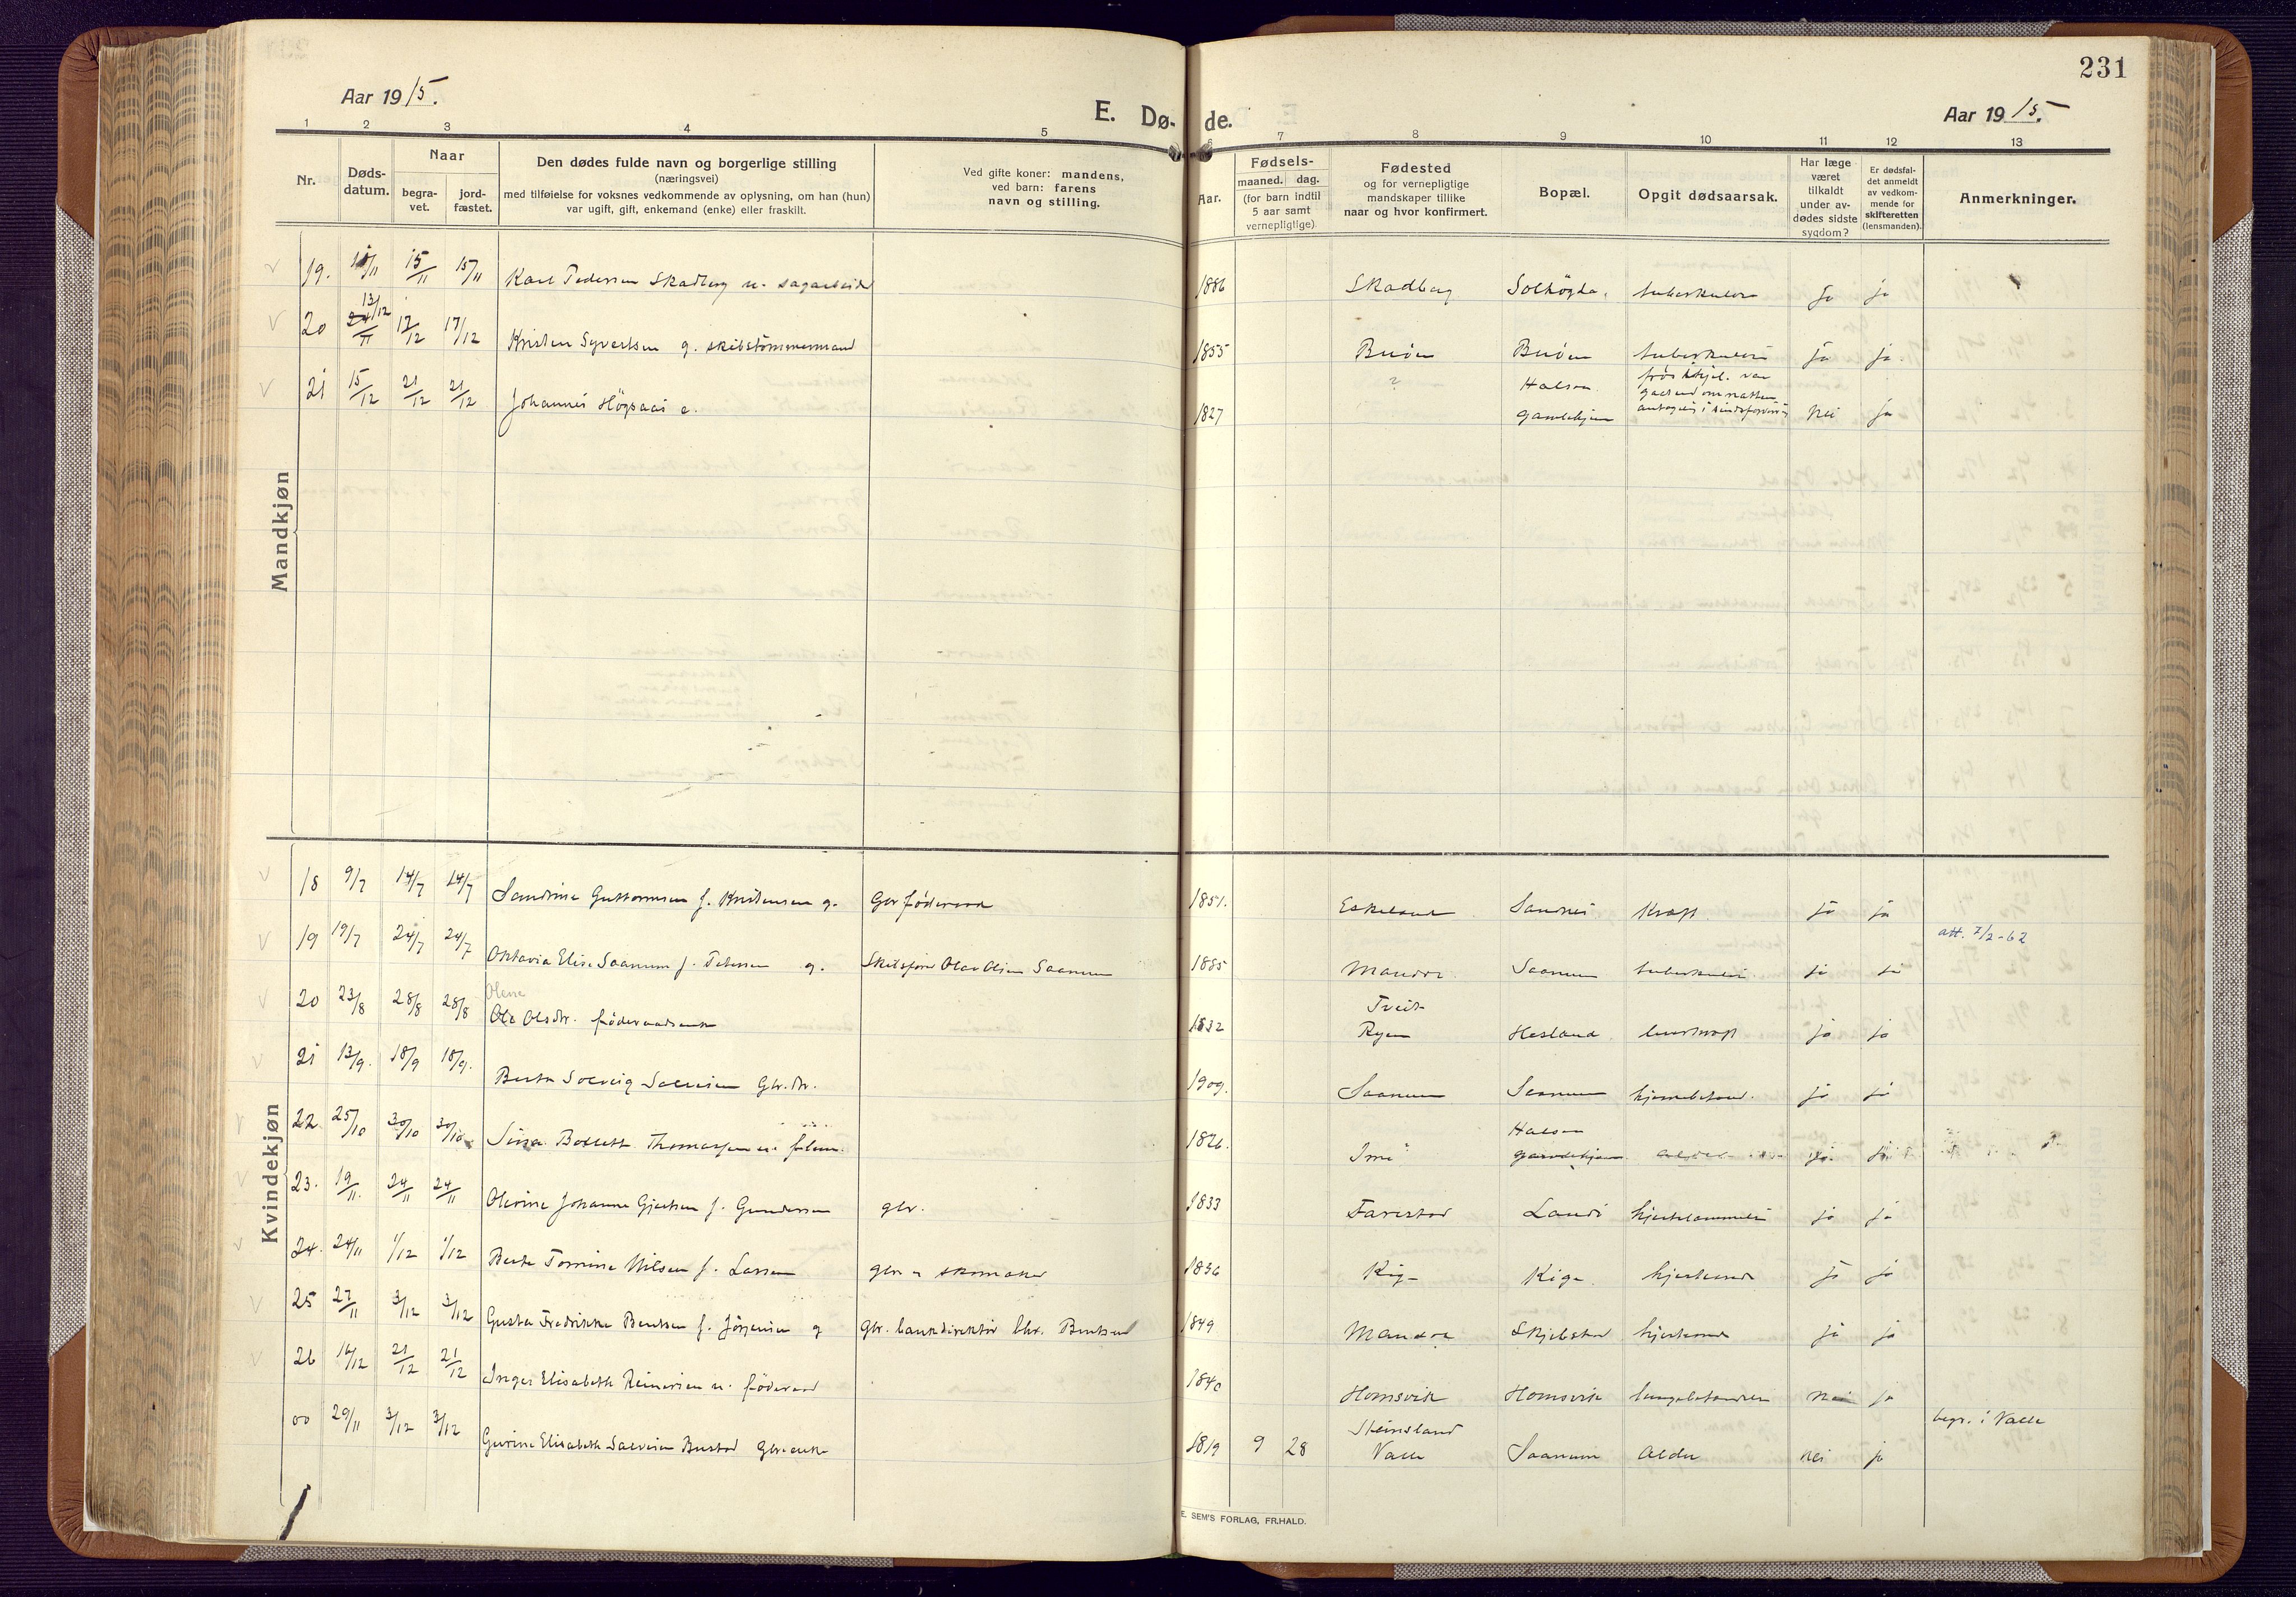 231
Aar 1915.
E. Dø-
de.
Aar 1915.
1 2 3 4 5 6 7 8 9 10 11 12 13
Nr.
Døds-
datum.
Naar
begra-
vet.
jord-
fæstet.
Den dødes fulde navn og borgerlige stilling
(næringsvei)
med tilføielse for voksnes vedkommende av oplysning, om han (hun)
var ugift, gift, enkemand (enke) eller fraskilt.
Ved gifte koner: mandens,
ved barn: farens
navn og stilling.
Aar.
Fødsels-
maaned. dag.
(for barn indtil
5 aar samt
vernepligtige).
Fødested
og for vernepligtige
mandskaper tillike
naar og hvor konfirmert.
Bopæl.
Opgit dødsaarsak.
Har læge
været
tilkaldt
under av-
dødes sidste
sygdom?
Er dødsfal-
det anmeldt
av vedkom-
mende for
skifteretten
(lensmanden).
Anmerkninger.
Mandkjøn
19. 15/11 15/11 Karl Pedersen Skadberg u. sagarbeider 1886 Skadberg Solhøgda. tuberkulose ja ja
20 13/12 17/12 17/12 Kristen Syvertsen g. skibstømmermand 1855 Buøen Buøen tuberkulose ja ja
21 15/12 21/12 21/12 Johannes Högsaas e. 1827 ? Halsen
gamlehjem nei ja
Kvindekjøn
18 9/7 14/7 14/7 Sandrine Guttormsen f. Kristensen g. Gbr føderaad 1851. Eskeland Sandnes Kræft ja ja
19 19/7 24/7 24/7 Oktavia Elise Saanum f. Pedersen g. Skibsfører Olav Olsen Saanum 1885 Mandal Saanum tuberkulose ja ja att. 7/2-62
20 23/8 28/8 28/8 Olene
Olsdtr. føderaadsenke 1832 Tveit
Ryen Hesland leverkræft ja ja
21 13/9. 18/9 18/9. Berta Solveig Salvesen Gbr.dtr. 1909. Saanum Saanum hjernebetænd. ja ja
22 25/10 30/10 30/10 Thomassen u. 1826. Ime Halsen
gamlehjem
23. 19/11. 24/11 24/11 Olevine Johanne Gjertsen f. Gundersen gbr. 1833 Farestad Landø hjertelammelse ja ja
24. 24/11 1/12 1/12 Berte Tomine Nilsen f. Larsen gbr. skomaker 1836 Kige Kige. hjerteonde ja ja
25 27/11 3/12 3/12 Gusta Fredrikke Bentsen f. Jörgensen g Gbr. bankdirektør Chr. Bentsen 1849 Mandal Skjebstad hjerteonde ja ja
26 16/12 21/12 21/12 Inger Elisabeth Reinertsen u. føderaad 1840 Homsvik Homsvik lungebetændelse nei ja
00 29/11 3/12 3/12 Gurine Elisabeth Salvesen Bustad Gbr.enke 1819 9 28 Steinsland
Valle Saanum Alder nei ja begr. i Valle
E. SEM'S FORLAG, FR.HALD.